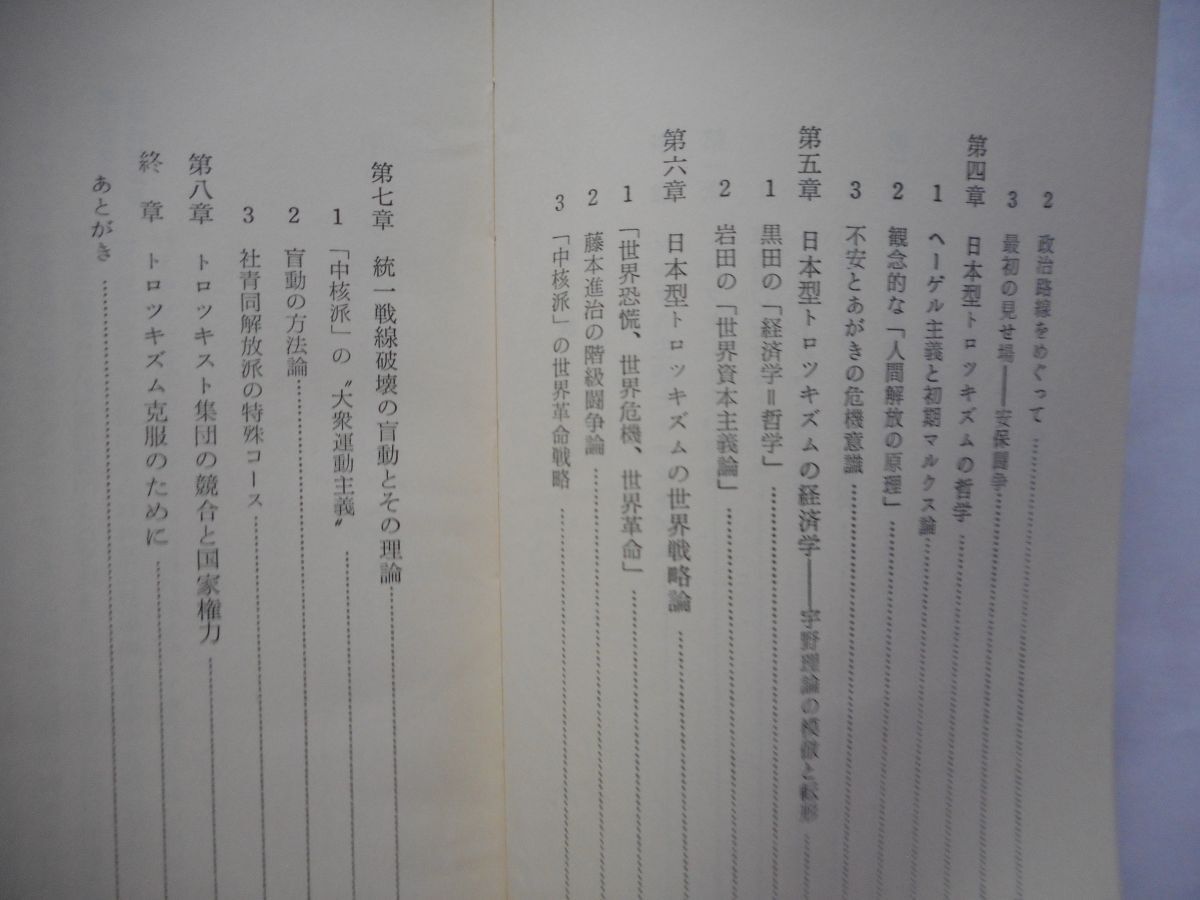 2 政治路線をめぐって
3 最初の見せ場――安保闘争
第四章 日本型トロツキズムの哲学
1 ヘーゲル主義と初期マルクス論
2 観念的な「人間解放の原理」
3 不安とあがきの危機意識
第五章 日本型トロツキズムの経済学――宇野理論の模倣と転形
1 黒田の「経済学＝哲学」
2 岩田の「世界資本主義論」
第六章 日本型トロツキズムの世界戦略論
1 「世界恐慌、世界危機、世界革命」
2 藤本進治の階級闘争論
3 「中核派」の世界革命戦略
第七章 統一戦線破壊の盲動とその理論
1 「中核派」の〝大衆運動主義〟
2 盲動の方法論
3 社青同解放派の特殊コース
第八章 トロツキスト集団の競合と国家権力
終章 トロツキズム克服のために
あとがき